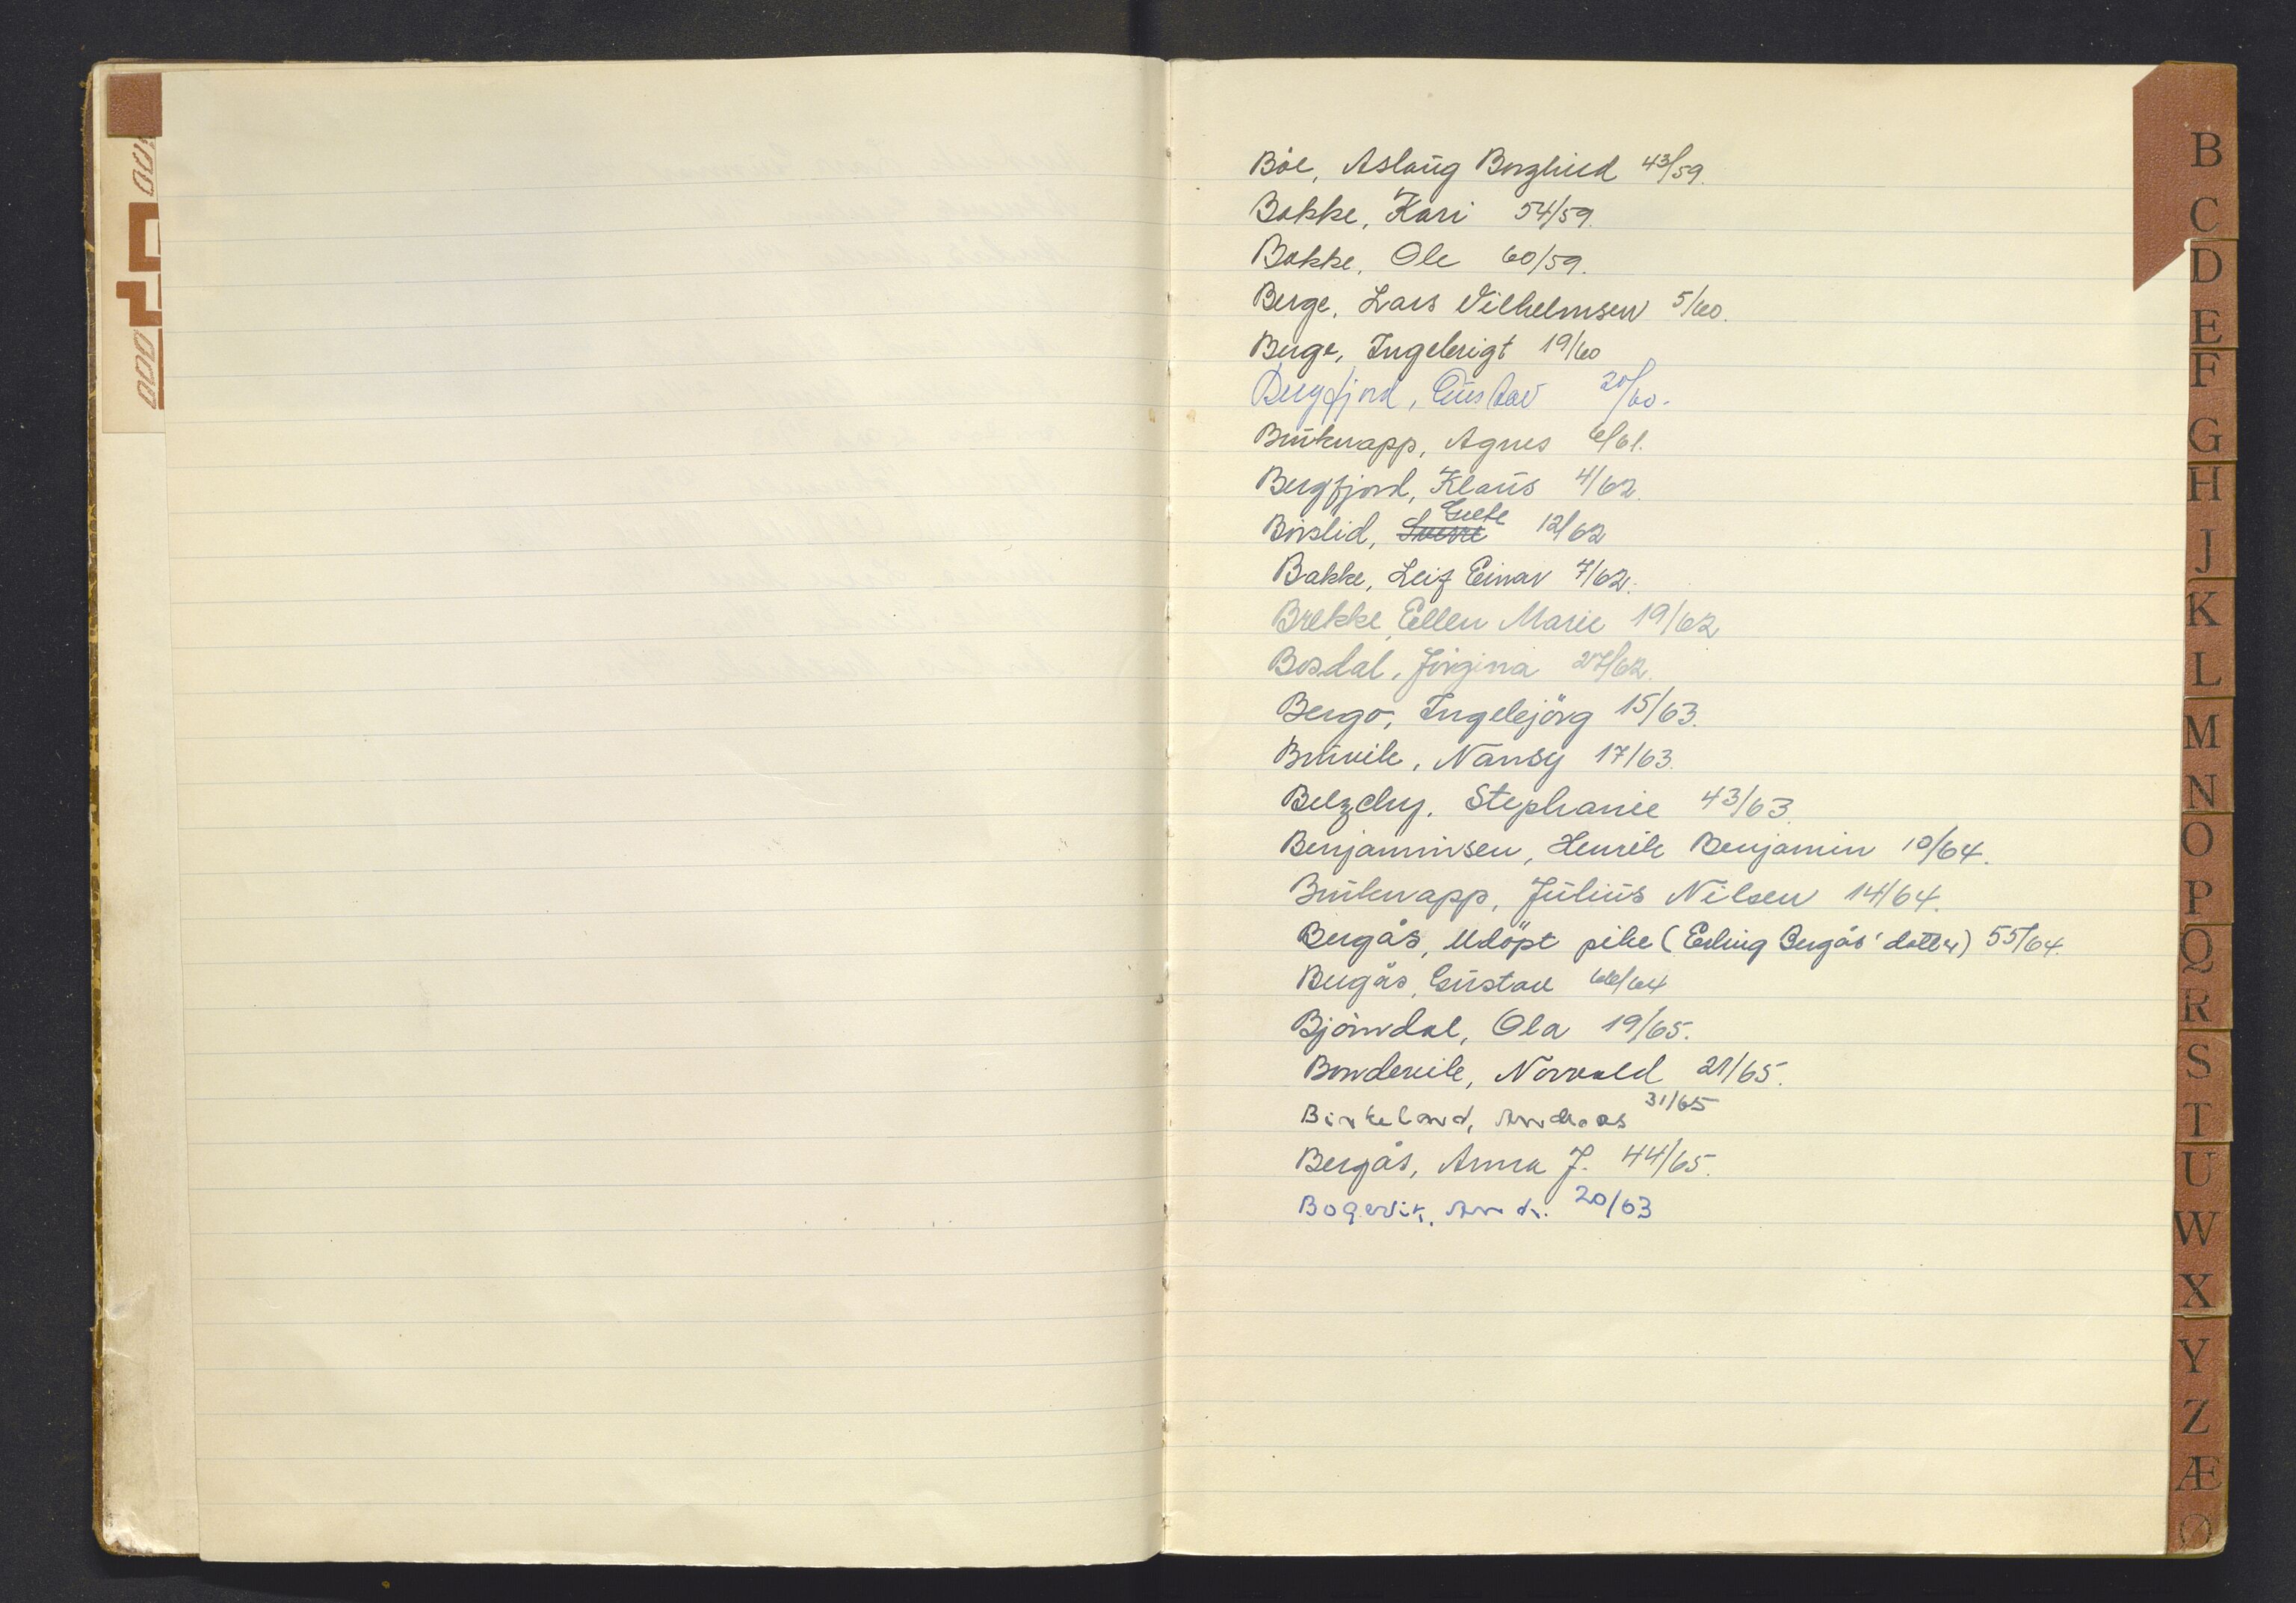 Böe, Aslaug Borghild 43/59.
Bakke, Kari 54/59.
Bakke, Ole 60/59.
Berge, Lars Vilhelmsen 5/60.
Berge, Ingebrigt 19/60
Bergfjord, Gustav 20/60.
Bruknapp, Agnes 6/61.
Bergfjord, Klaus 4/62.
Börslid, Sverre Grete 12/62
Bakke, Leif Einar 7/62.
Brekke, Ellen Marie 19/62
Bosdal, Jörgina 27/62.
Bergo, Ingebjörg 15/63.
Bruvik, Nansy 17/63.
Stephanie 43/63.
Benjaminsen, Henrik Benjamin 10/64.
Bruknapp, Julius Nilsen 14/64.
Bergås, Udöpt pike (Erling Bergås' datter) 55/64.
Bergås, Gustav 66/64
Björndal, Ola 19/65.
Bondevik, Norvald 21/65.
Birkeland, Andreas 31/65
Bergås, Anna J. 44/65.
Bogevik, And. 20/63
B
C
D
E
F
G
H
J
K
L
M
N
O
P
Q
R
S
T
U
W
X
Y
Z
Æ
Ø